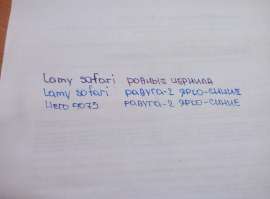 Lamy safari РОДНЫЕ ЧЕРНИЛА
Lamy safari РАДУГА-2 ЯРКО-СИНИЕ
Hero 5075 РАДУГА-2 ЯРКО-СИНИЕ